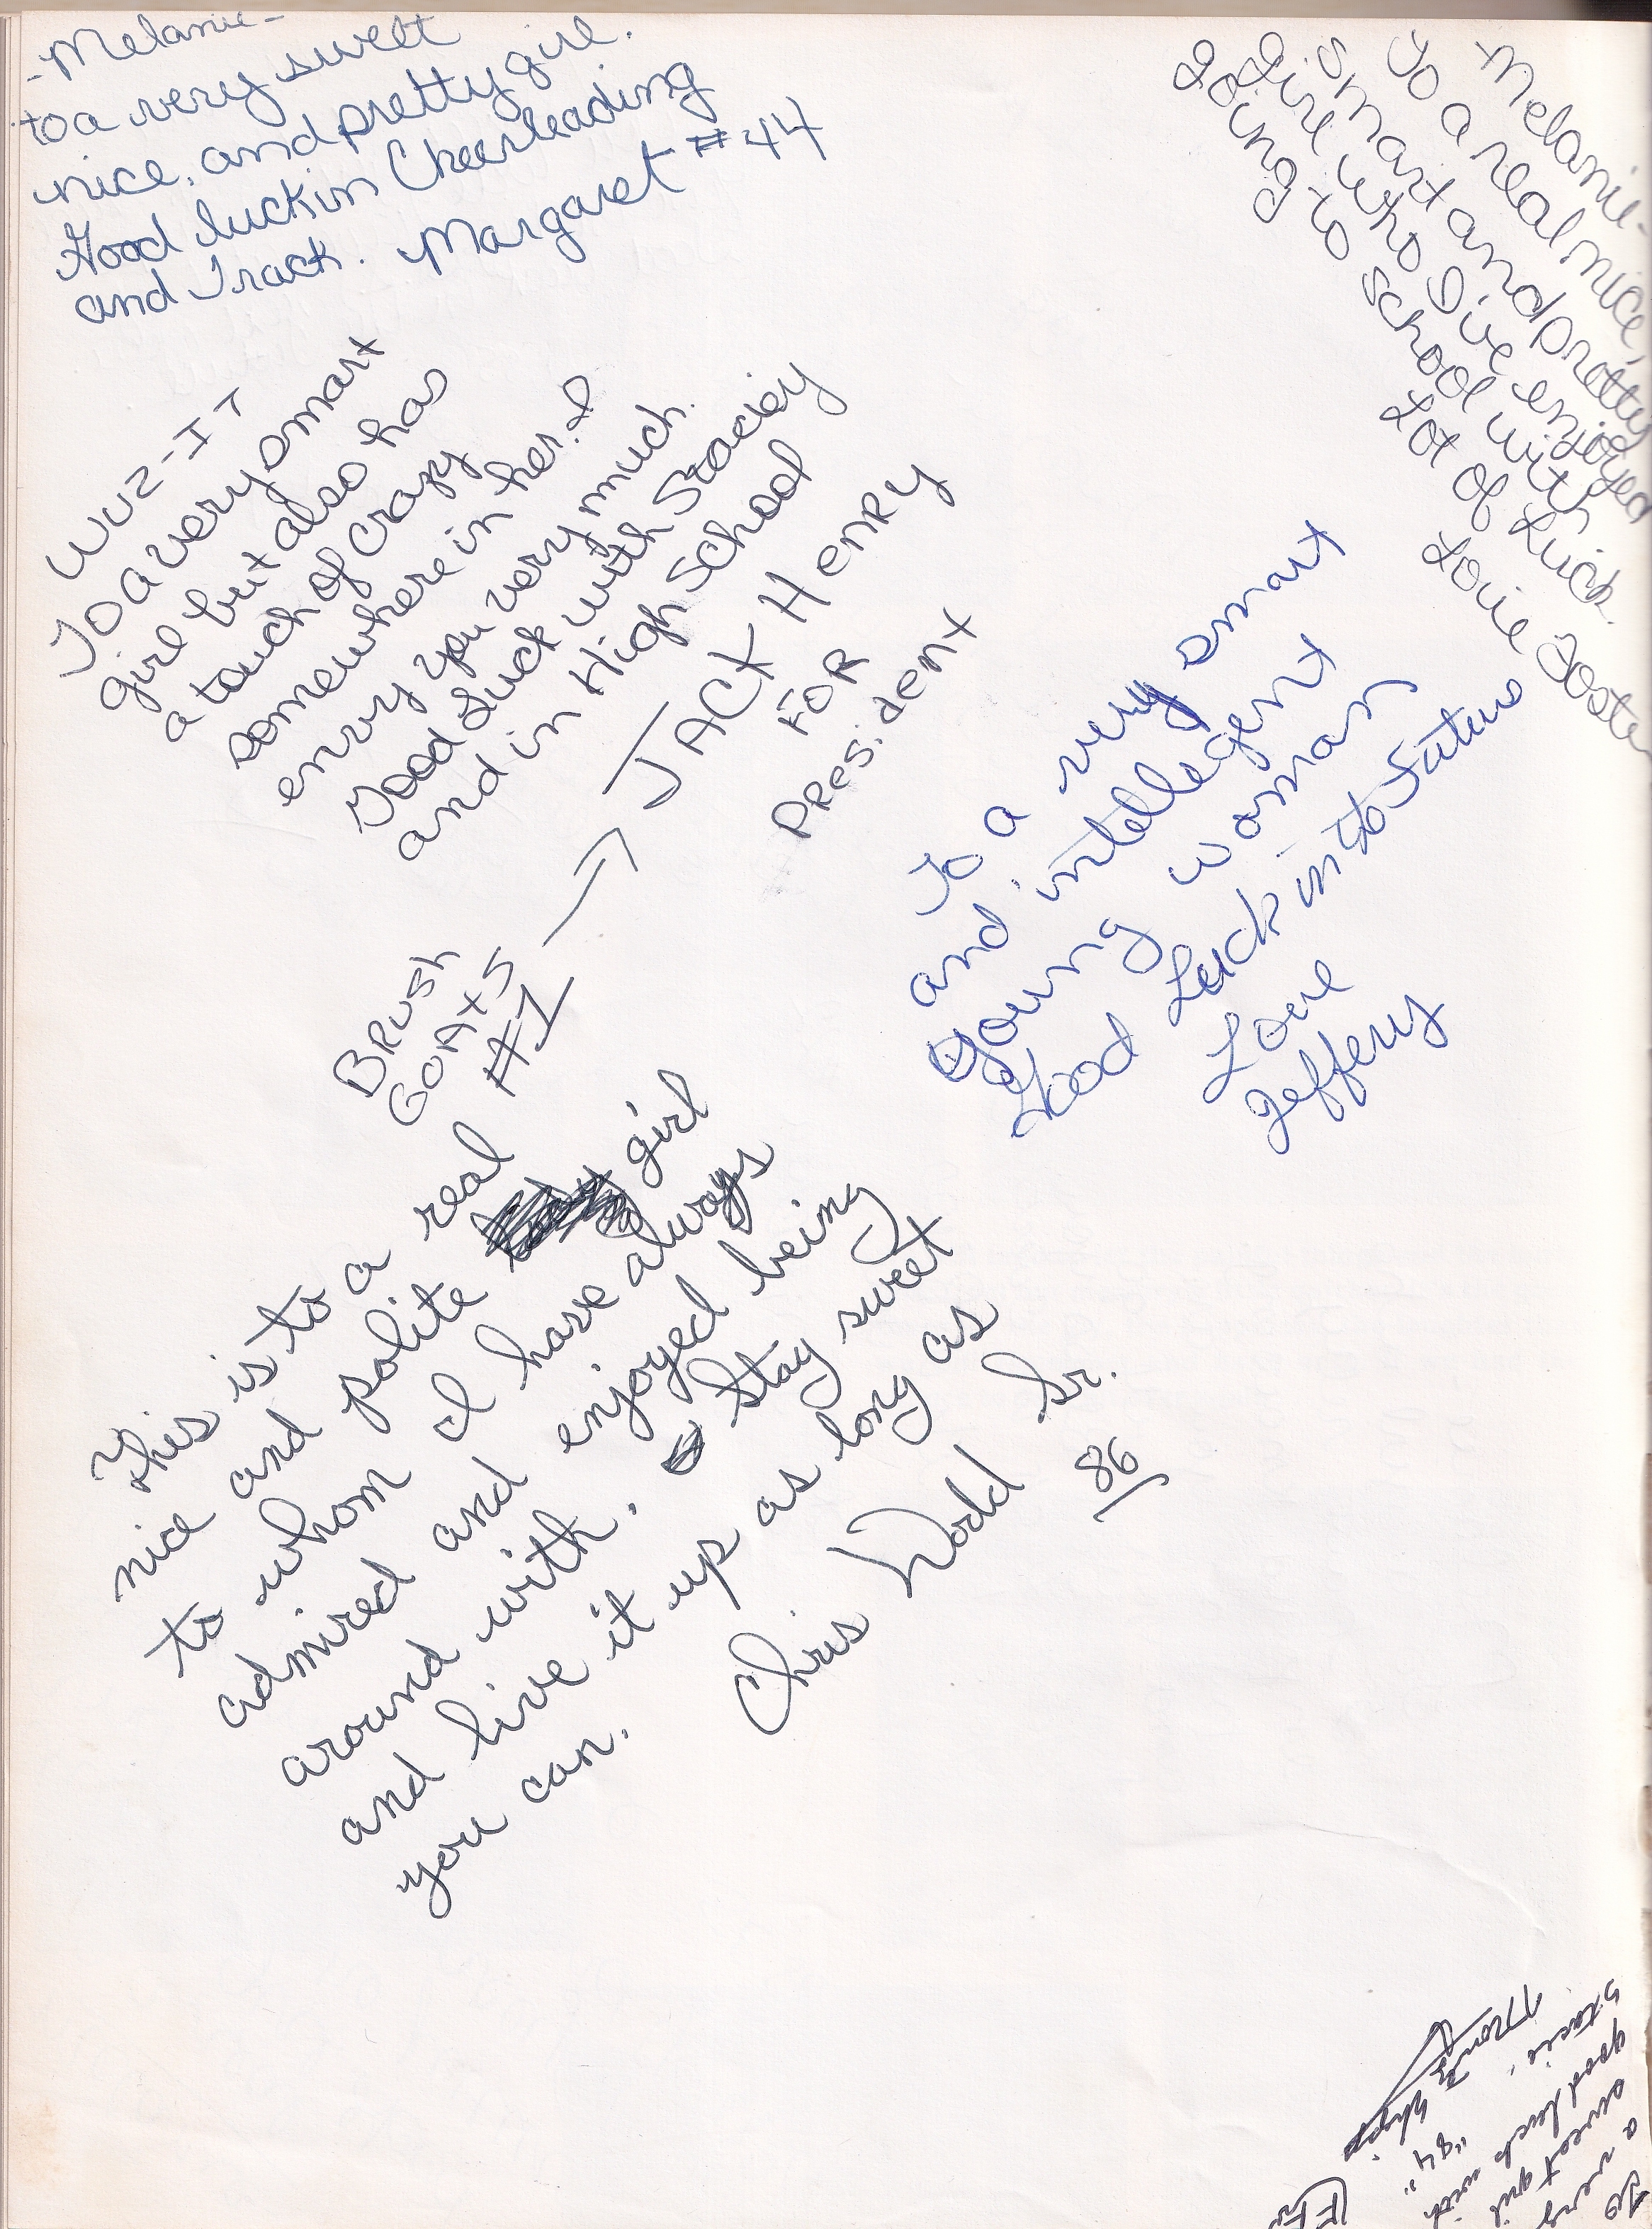 -Melanie-
to a very sweet
nice, and pretty girl.
Good luck in Cheerleading
and Track. Margaret #44
-Melanie-
To a real nice,
smart and pretty
girl who I've enjoyed
going to school with
Lot of Luck.
Love
WUZ-IT
To a very smart
girl but also has
a touch of crazy
somewhere in her. I
envy you very much.
Good Luck with Staciey
and in High School
JACK HENRY
FOR
PRESidENt
BRUSH
GOAtS
#1
To a very smart
and intellegent
young woman
Good Luck in to Future
Love
Jeffery
This is to a real
nice and polite girl
to whom I have always
admired and enjoyed being
around with. Stay sweet
and live it up as long as
you can.
Chris Dodd Sr.
86
To
a very
sweet girl
good luck with
Stacie.
"84"